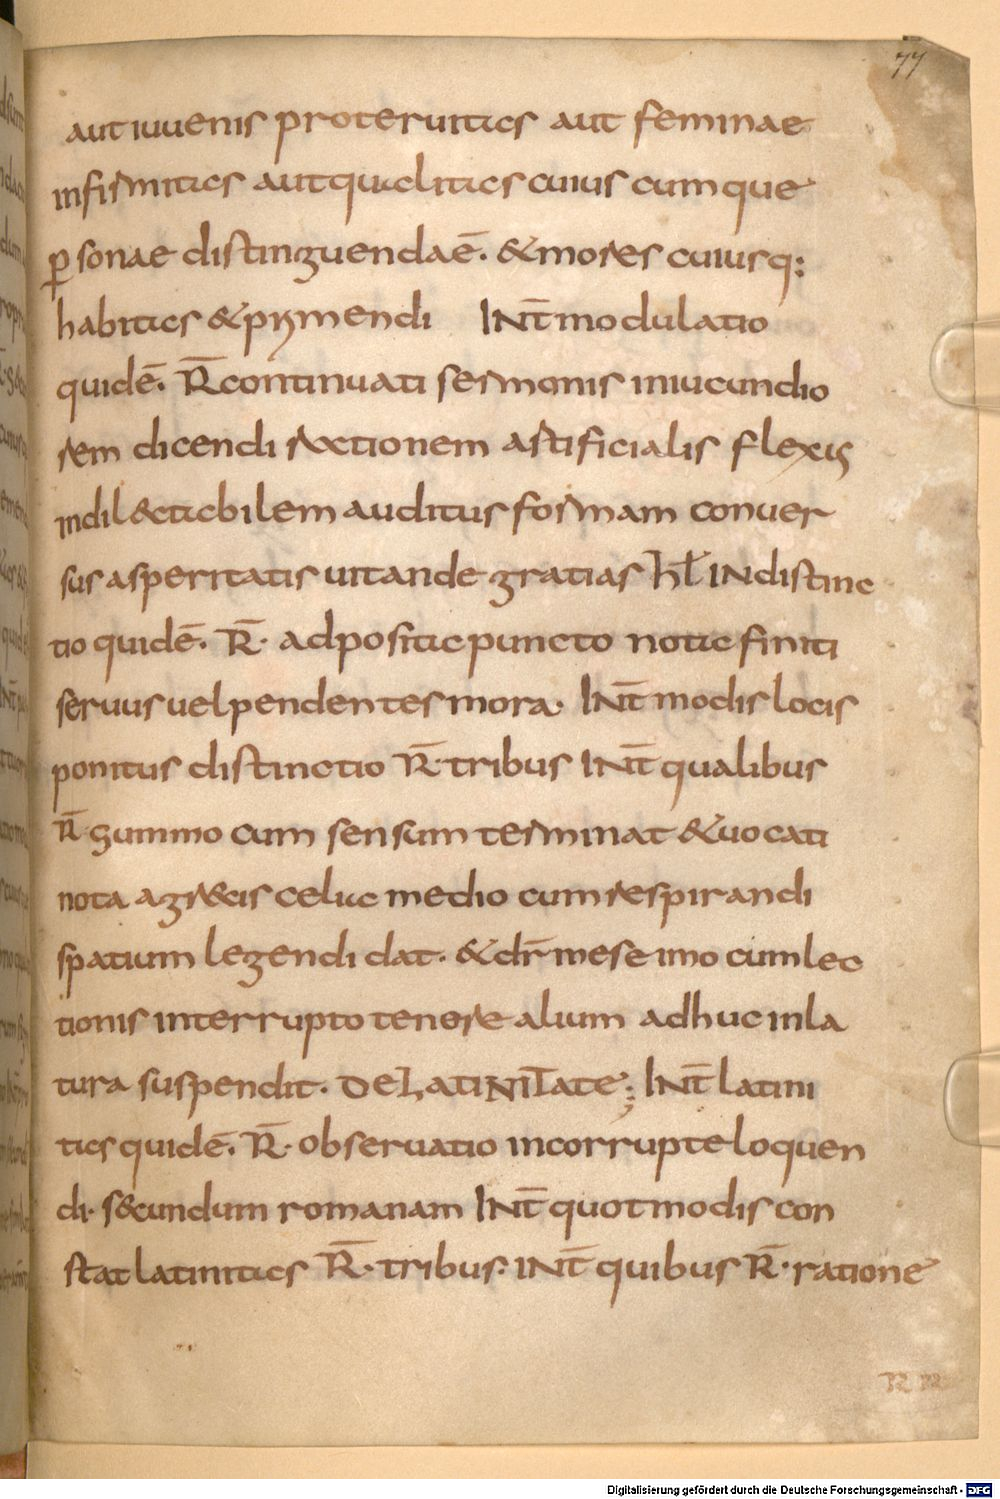 77
aut iuuenis proteruitas aut feminae
infirmitas aut qualitas cuius cumque
p̱sonae distinguenda ē. & mores cuiusq:
habitus & p̱mendi INT̄ modulatio
quid ē. R̄ continuati sermonis in iucundio
rem dicendi rectionem artificialis flexus
in dil&tabilem auditus formam conuer
sus asperitatis uitande gratias hł IN distinc
tio quid ē. R̄. adposita puncto nota finiti
seruus uel pendentes mora. INT̄ modis locis
ponitus distinctio R̄. tribus INT̄ qualibus
R̄. summo cum sensum terminat & uocati
nota a gr&cis celuc medio cum respirandi
spatium legendi dat. & dr̄ mese imo cum lec
tionis interrupto tenore alium adhuc inla
tura suspendit. DE LATINITATE; INT̄ latini
tas quid ē. R̄. obseruatio incorrupte loquen
di. s&cundum romanam INT̄ quot modis con
stat latinitas R̄. tribus. INT̄ quibus R̄. ratione
Digitalisierung gefördert durch die Deutsche Forschungsgemeinschaft - DFG